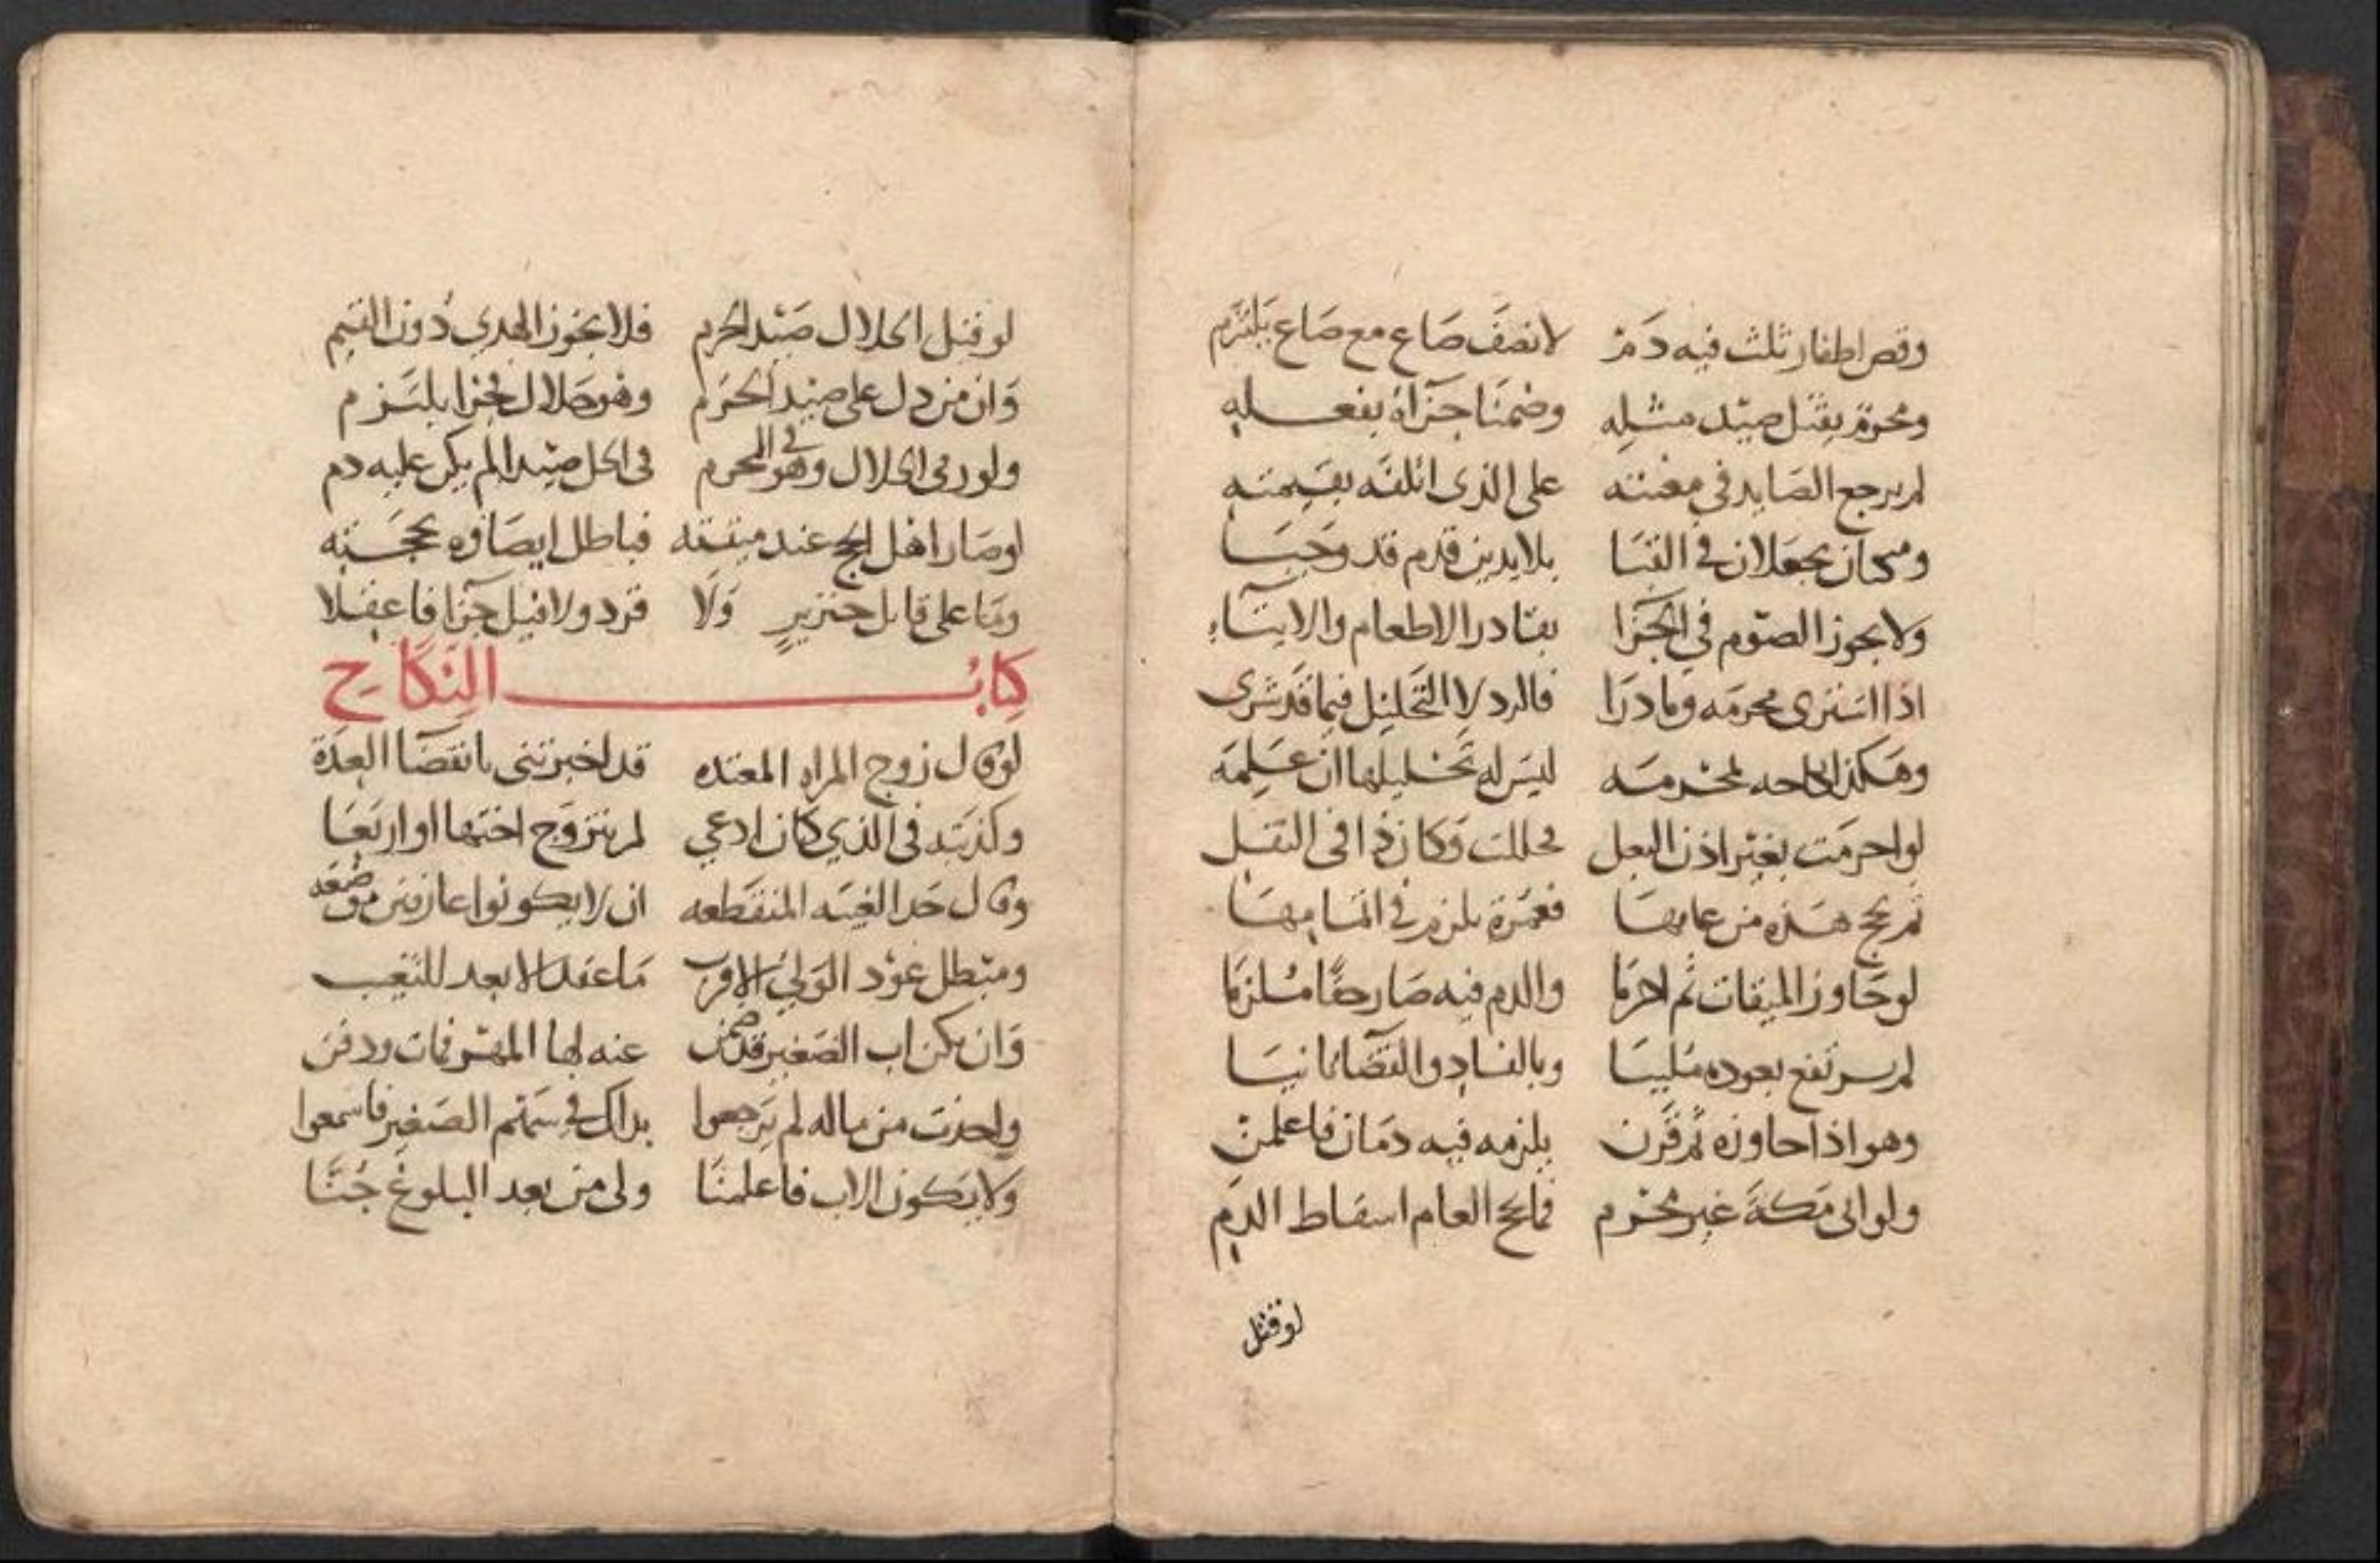 وقص اطفار ثلث فيه دم لا نصف صاع مع صاع يلتزم
ومحرم يقتل صيد مثله وضمنا جزاه بفعله
لم يرجع الصايد في معنته على الذى اتلفه بقيمته
ومحان يجعلان في القبا بلا يدين قدم قد وجبا
ولا يجوز الصوم في الجزا بقادر الاطعام والايتاء
اذا اشترى محرمه وما درا فالرد لا التحليل فيما قد شرى
وهكذا نكاحه لمحرمه ليس له تحليلها ان علمه
لو احرمت بغير اذن البعل فحللت وكان ذا فى النفل
ثم تحج هذه من عامها فعمرة يلزم في اتمامها
لو جاوز الميقات ثم احرما والدم فيه صار حقا ملزما
لم يرتفع بعوده ملبيا وبالفساد والقضا ثانيا
وهو اذا جاوزه ثم قرن يلزمه فيه دمان فاعلمن
ولو اتى مكة غير محرم فما بحج العام اسقاط الدم
لو قتل
لو قتل الحلال صيد الحرم فلا يجوز الهدي دون القيم
وان من دل على صيد الحرم وهو حلال لجزا يلتزم
ولو رمى الحلال وهو في الحرم فى الحل صيدا لم يكن عليه دم
لو صار اهل الحج عند ميقته فباطل ايصاوه بحجته
وما على قاتل خنزير ولا قرد ولا فيل جزا فاعقلا
كتاب النكاح
لو قال زوج المراه المعتده قد اخبرتنى بانقضا العدة
وكذبته فى الذي كان ادعي لم يتزوج اختها او اربعا
وقال حد الغيبه المنقطعه ان لا يكونوا عارفين موضعه
ومبطل عود الولي الاقرب ما عقد الابعد للتغيب
وان يكن اب الصغير قد ضمن عنه لها المهر فمات ودفن
واخذت من ماله لم يرجعوا بذاك في سهم الصغير فاسمعوا
ولا يكون الاب فاعلمنا ولى من بعد البلوغ جنا